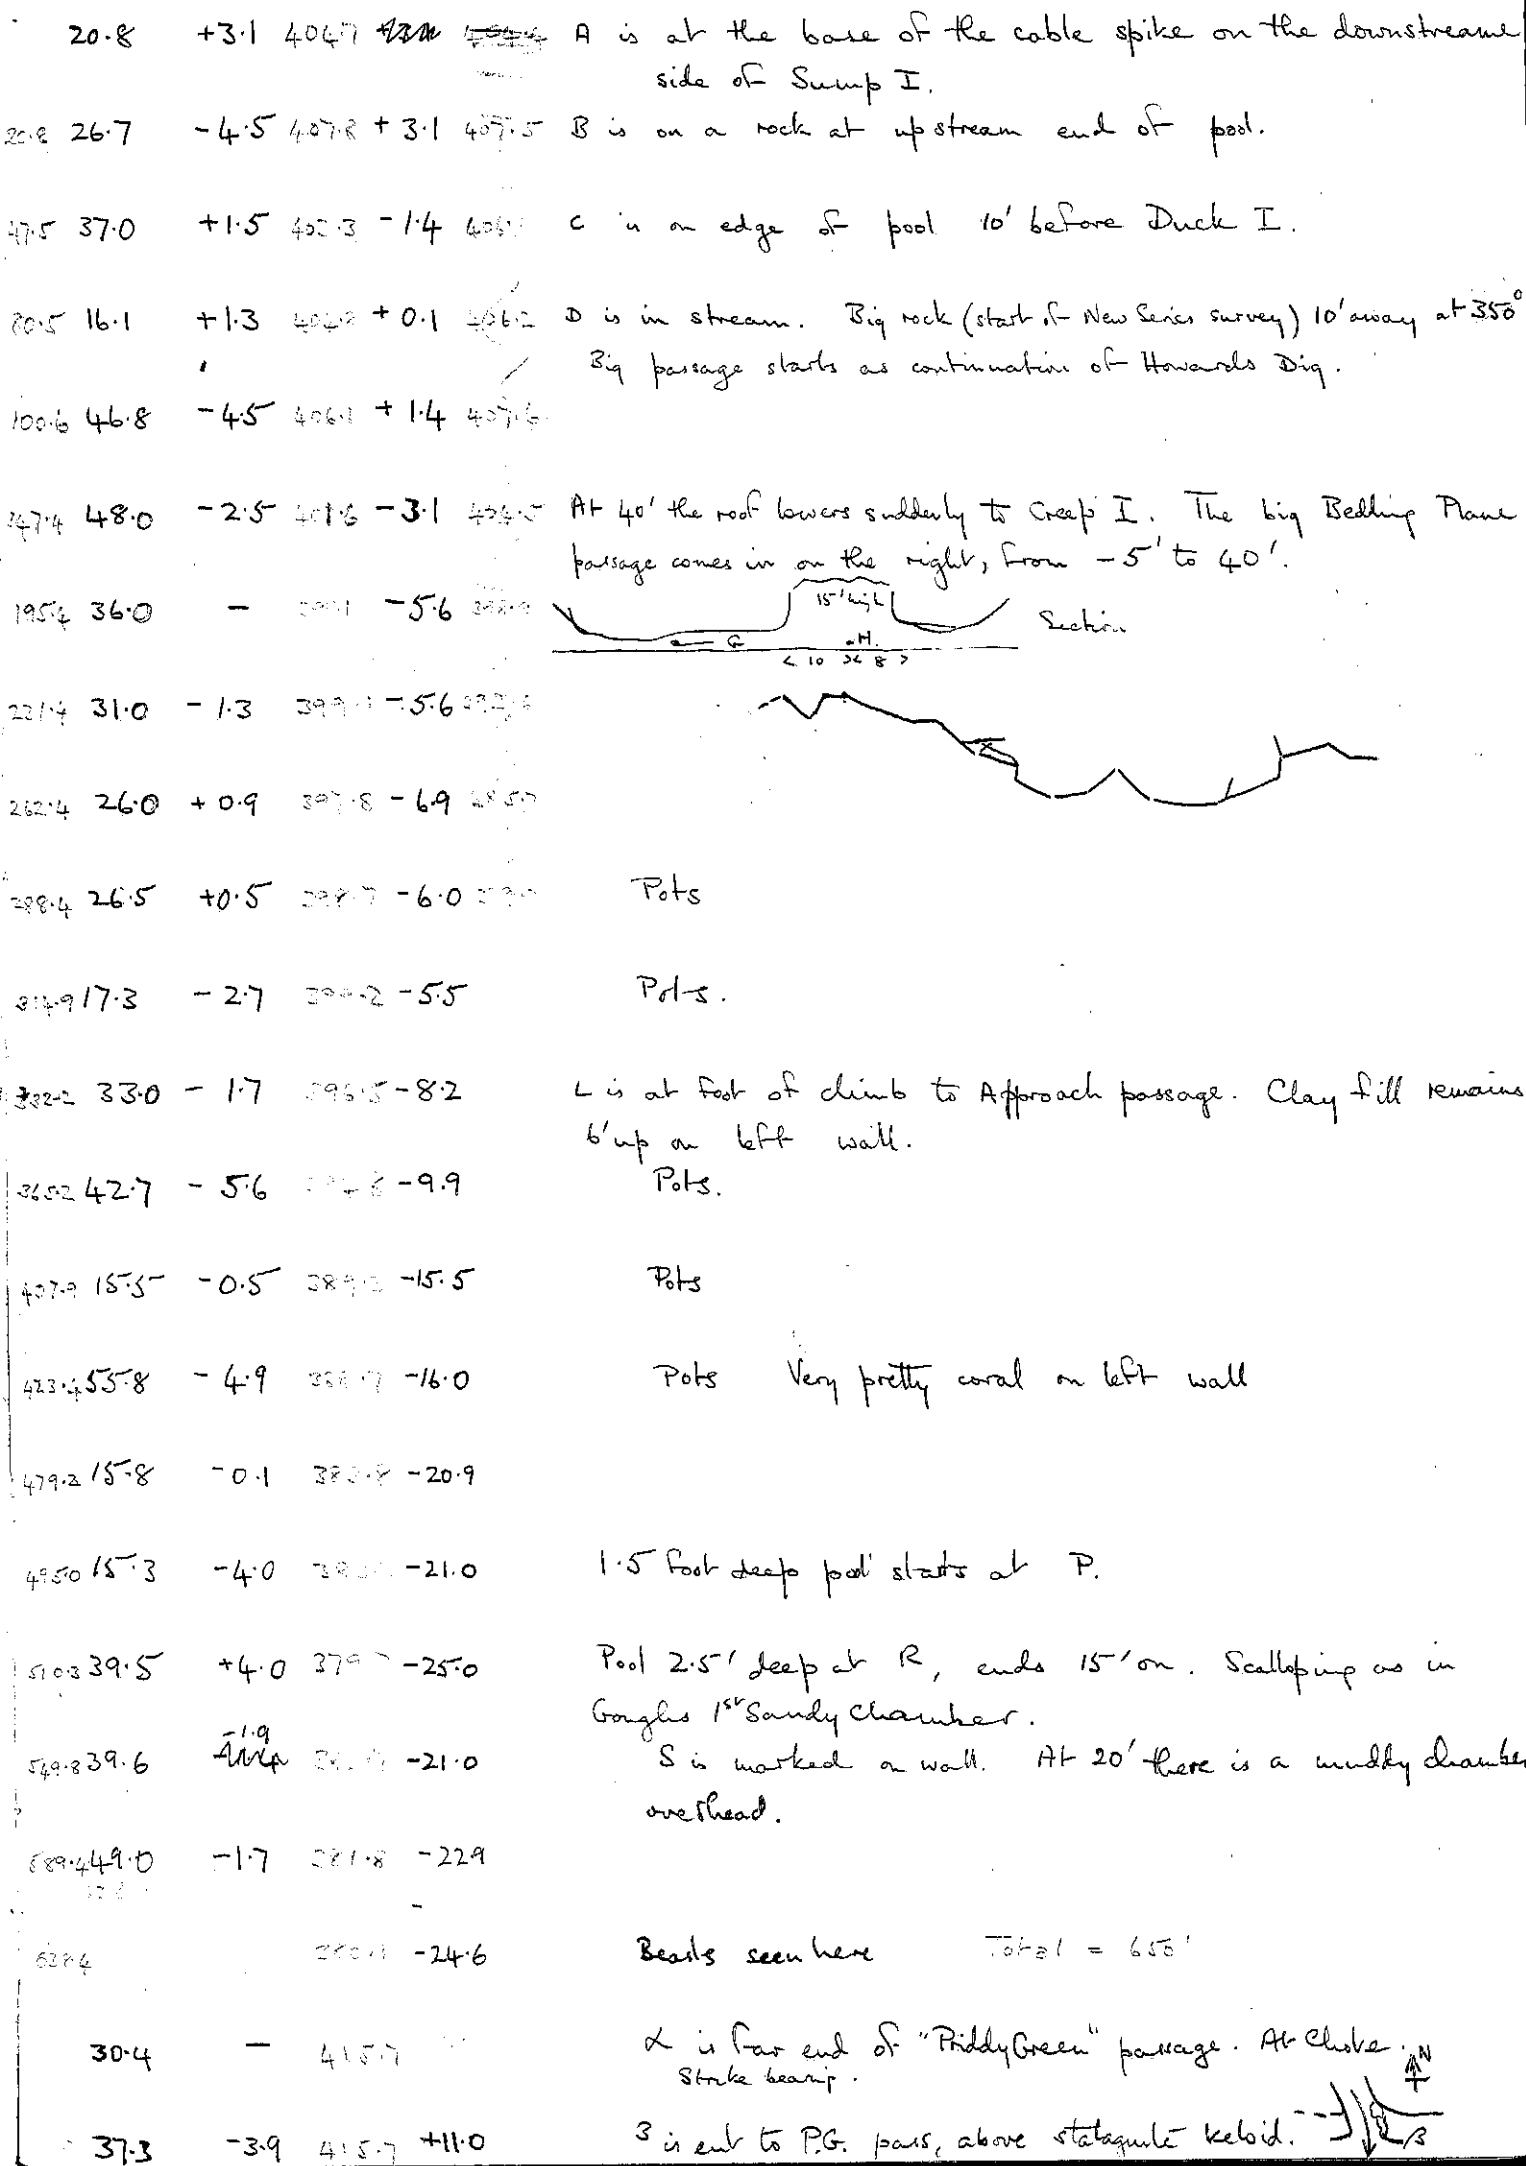 20.8 +3.1 4047 A is at the base of the cable spike on the downstreame
side of Sump I.
20.8 26.7 -4.5 407.8 +3.1 407.5 B is on a rock at upstream end of pool.
47.5 37.0 +1.5 403.3 -1.4 C is on edge of pool 10' before Duck I.
80.5 16.1 +1.3 404.8 +0.1 406.2 D is in stream. Big rock (start of New Series survey) 10' away at 350°
Big passage starts as continuation of Howards Dig.
100.6 46.8 -4.5 406.1 +1.4 407.6
147.4 48.0 -2.5 401.6 -3.1 404.5 At 40' the roof lowers suddenly to Creep I. The big Bedding Plane
passage comes in on the right, from -5' to 40'.
195.4 36.0 - 399.1 -5.6 15' high Section
G .H.
< 10 >< 8 >
231.4 31.0 -1.3 399.1 -5.6
262.4 26.0 +0.9 397.8 -6.9
288.4 26.5 +0.5 398.7 -6.0 Pots
314.9 17.3 -2.7 399.2 -5.5 Pots.
332.2 33.0 -1.7 396.5 -8.2 L is at foot of climb to Approach passage. Clay fill remains
6' up on left wall.
365.2 42.7 -5.6 -9.9 Pots.
407.9 15.5 -0.5 389.2 -15.5 Pots
423.4 55.8 -4.9 388.7 -16.0 Pots Very pretty coral on left wall
479.2 15.8 -0.1 383.8 -20.9
495.0 15.3 -4.0 -21.0 1.5 foot deep pool starts at P.
510.3 39.5 +4.0 379.7 -25.0 Pool 2.5' deep at R, ends 15' on. Scalloping as in
Goughs 1st Sandy Chamber.
-1.9
549.8 39.6 -21.0 S is marked on wall. At 20' there is a muddy chamber
overhead.
589.4 49.0 -1.7 381.8 -22.9
638.4 380.1 -24.6 Beasts seen here Total = 650'
30.4 - 415.7 α is far end of "Priddy Green" passage. At Choke.
Strike bearing.
N
37.3 -3.9 415.7 +11.0 β is ent to P.G. pass, above stalagmite keloid.
β